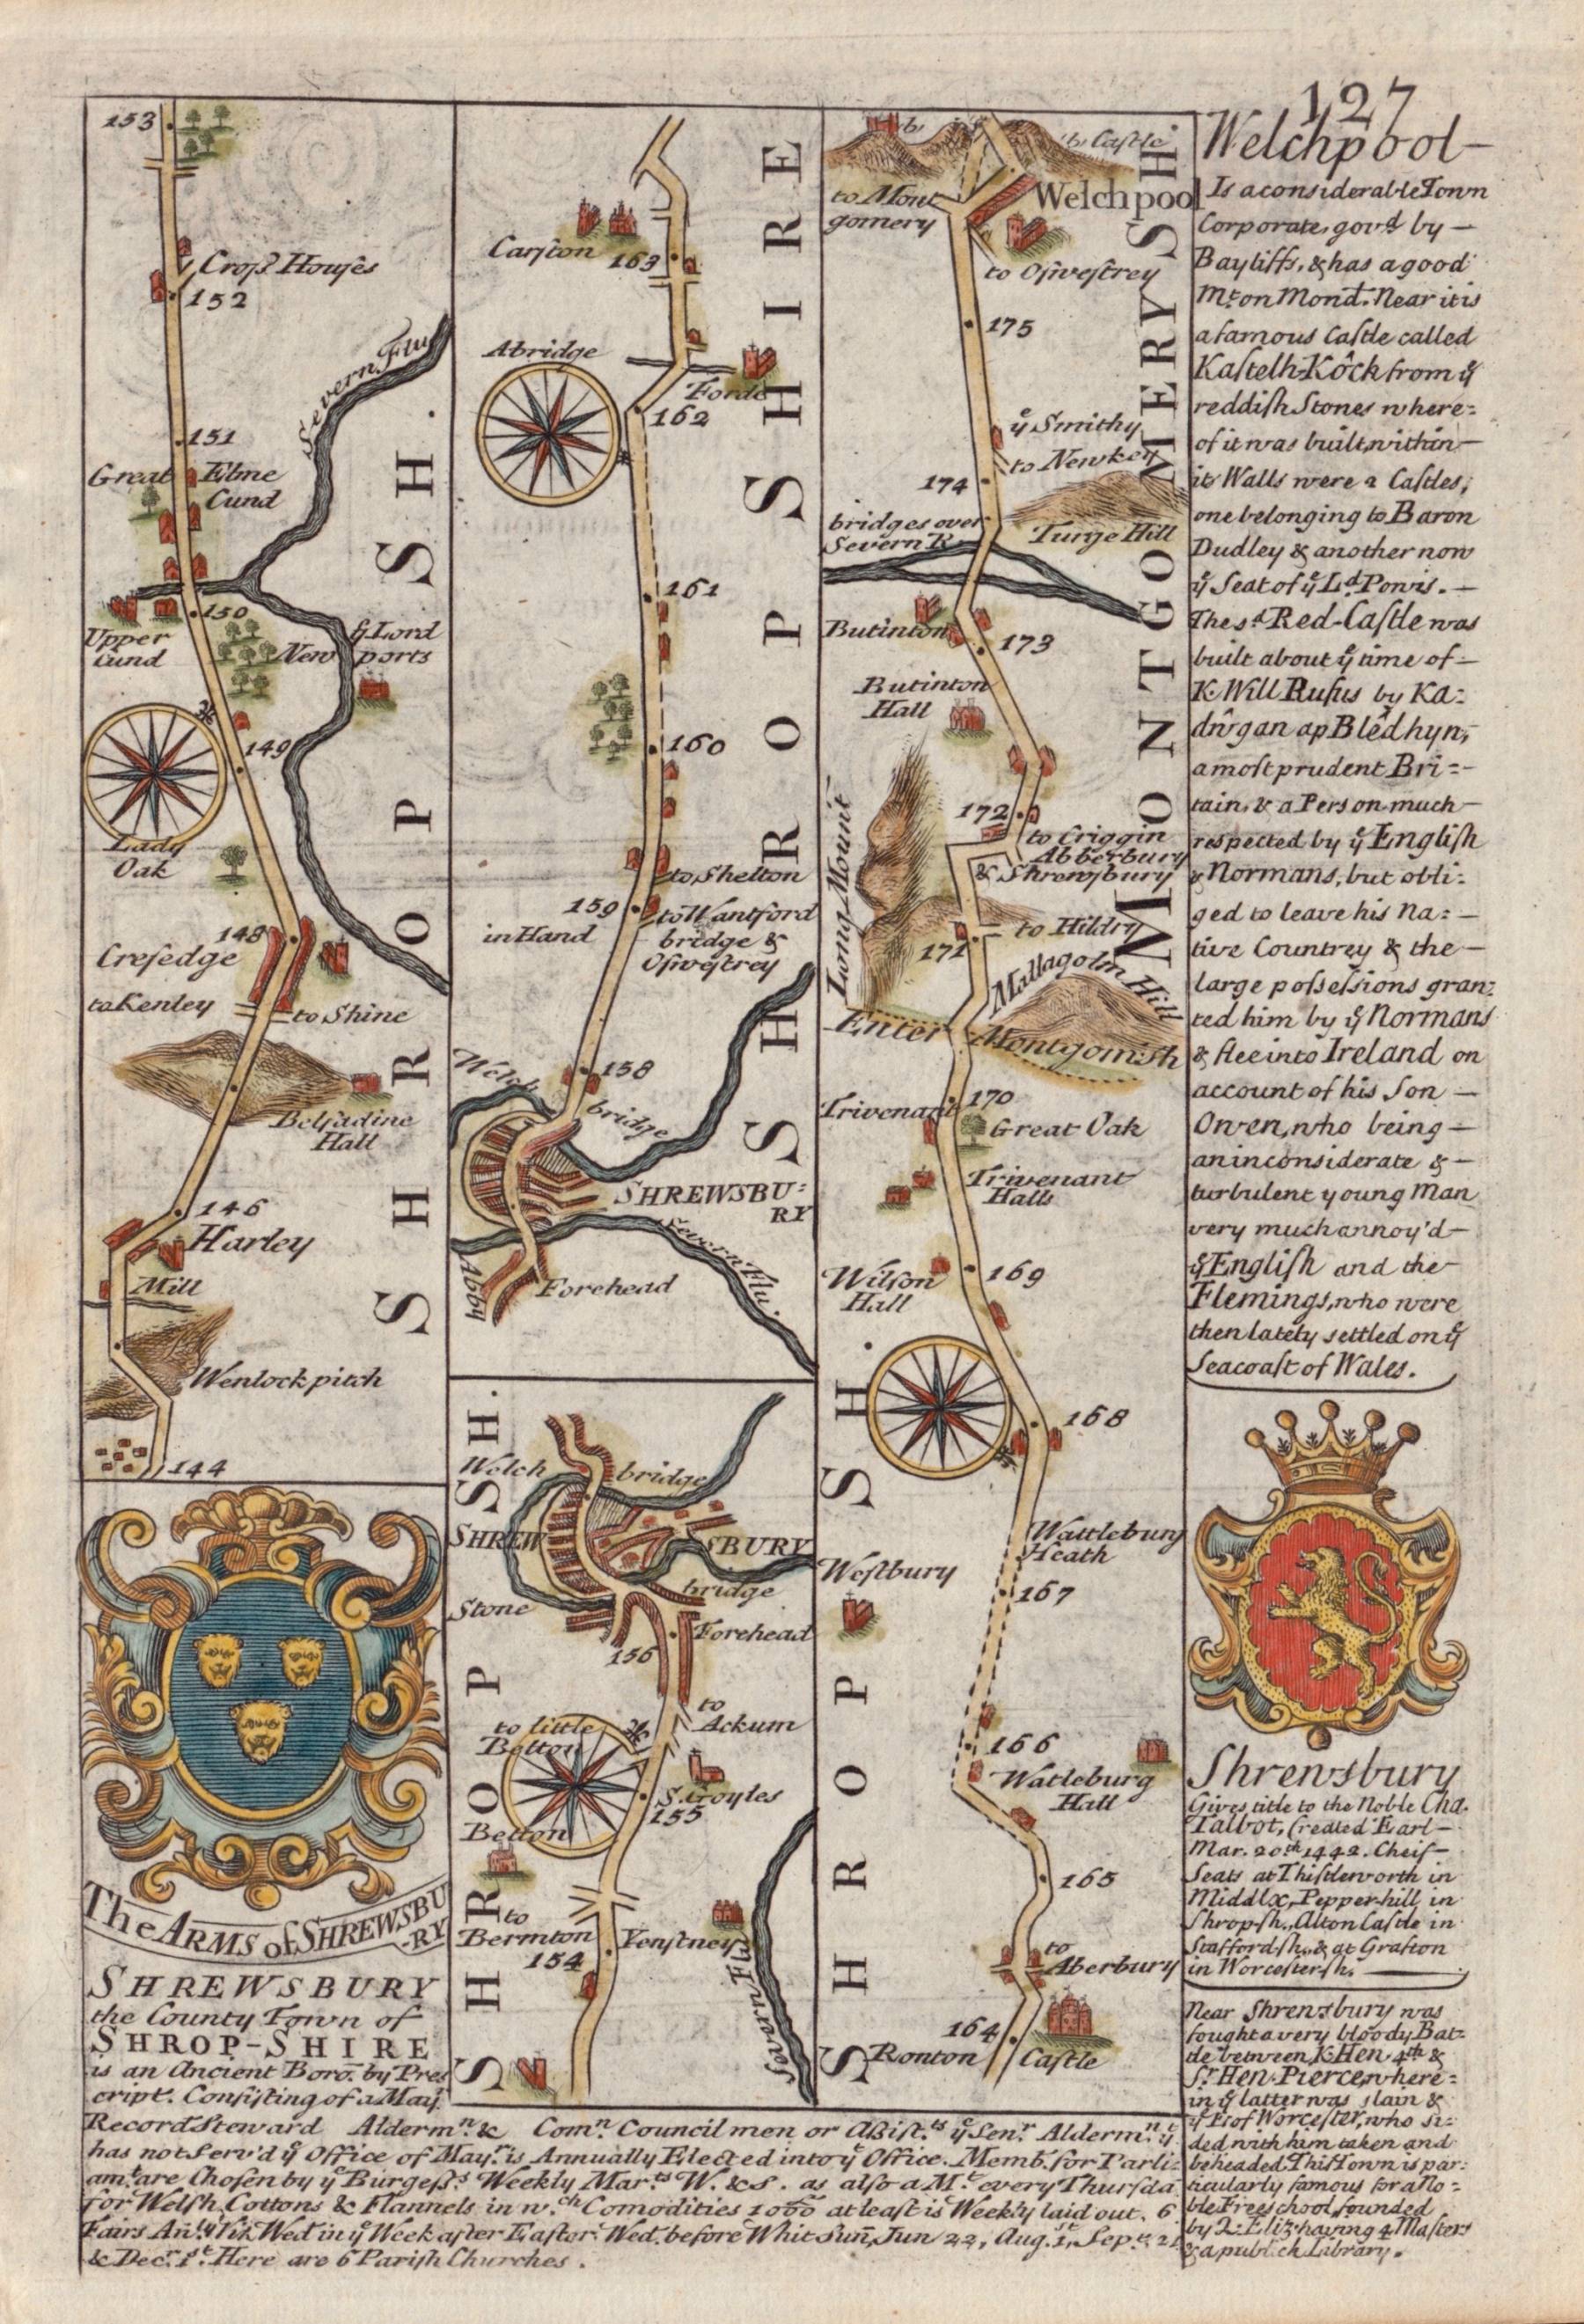 127
153
Croſs Houſes
152
Severn Flu
151
Great Elme
Cund
150
Upper
Cund
ẙ Lord
New ports
149
Lady
Oak
148
Creſedge
to Kenley
to Shine
Belſadine
Hall
146
Harley
Mill
Wenlock pitch
144
SHROPSH.
The ARMS of SHREWSBU
-RY
SHREWSBURY
the County Town of
SHROP-SHIRE
is an Ancient Boro. by Pres
cript. Conſiſting of a May.
Record. Steward Alderm.n & Com.n Council men or Aſſiſt.ts ẙ Sen.r Alderm.n ẙ
has not Serv'd ẙ Office of May.r is Annually Elected into ẙ Office. Memb. for Parli-
am.t are Choſen by ẙ Burgeſs.s Weekly Mar.ts W. & S. as alſo a M.t every Thurſda
for Welſh Cottons & Flannels in w.ch Comodities 1000 at leaſt is Weekly laid out. 6
Fairs An.ly Viz. Wed. in ẙ Week after Eaſter. Wed. before Whit Sun, Jun 22, Aug. 1st, Sep. 21
& Dec.r 1st. Here are 6 Pariſh Churches.
Carſton 163
Abridge
Forde
162
161
160
to Shelton
159
to Wantford
in Hand
bridge &
Oſweſtrey
158
Welch
bridge
SHREWSBU-
RY
Severn Flu.
Abby
Forehead
SHROPSHIRE
Welch
bridge
SHREW SBURY
Stone
bridge
Forehead
156
to
Ackum
to little
Betton
S. Groyles
155
Betton
to
Bermton
Venſtney
154
Severn Flu
SHROPSH.
to Castle
to Mont
gomery
Welchpool
to Oſweſtrey
175
ẙ Smithy
to Newkey
174
bridges over
Severn R.
Turge Hill
Butinton
173
Butinton
Hall
172
to Criggin
Abberbury
& Shrewſbury
Long Mount
to Hildry
171
Mallagolm Hill
Enter Montgom:sh
Trivenant
170
Great Oak
Trivenant
Halls
Wilſon
Hall
169
168
Wattlebury
Heath
Weſtbury
167
166
Watleburg
Hall
165
to
Aberbury
164
Ronton Caſtle
MONTGOMERYSH
SHROPSH.
Welchpool-
Is a conſiderable Town
Corporate, gov.d by -
Bayliffs, & has a good
M.t on Mond. Near it is
a famous Caſtle called
Kaſtelh Kôck from ẙ
reddiſh Stones where-
of it was built, within -
its Walls were 2 Caſtles,
one belonging to Baron
Dudley & another now
ẙ Seat of ẙ L.d Powis. -
The s.d Red-Caſtle was
built about ẙ time of -
K. Will Rufus by Ka-
dŵgan ap Blêdhyn,
a moſt prudent Bri-
tain, & a Perſon much -
reſpected by ẙ Engliſh
& Normans, but obli-
ged to leave his Na-
tive Countrey & the -
large poſseſsions gran-
ted him by ẙ Normans
& flee into Ireland on
account of his Son -
Owen, who being -
an inconſiderate & -
turbulent young Man
very much annoy'd -
ẙ Engliſh and the -
Flemings, who were
then lately settled on ẙ
Seacoaſt of Wales.
Shrewsbury
Gives title to the Noble Cha.
Talbot, Created Earl -
Mar. 20th 1442. Cheif -
Seats at Thiſtleworth in
Middlx, Pepper-hill in
Shrop-ſh., Alton Caſtle in
Staffordſh. & at Grafton
in Worceſterſh.
Near Shrewsbury was
fought a very bloody Bat-
tle between K. Hen. 4th &
S.r Hen. Pierce, where-
in ẙ latter was slain &
ẙ E. of Worceſter, who si-
ded with him taken and
beheaded. This Town is par-
ticularly famous for a No-
ble Free school, founded
by Q. Eliz. having 4 Maſters
& a publick Library.